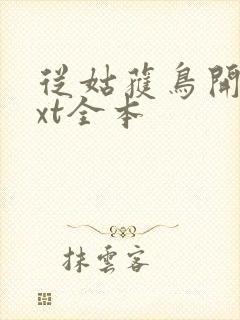 從姑獲鳥開
xt全本
抹雲客